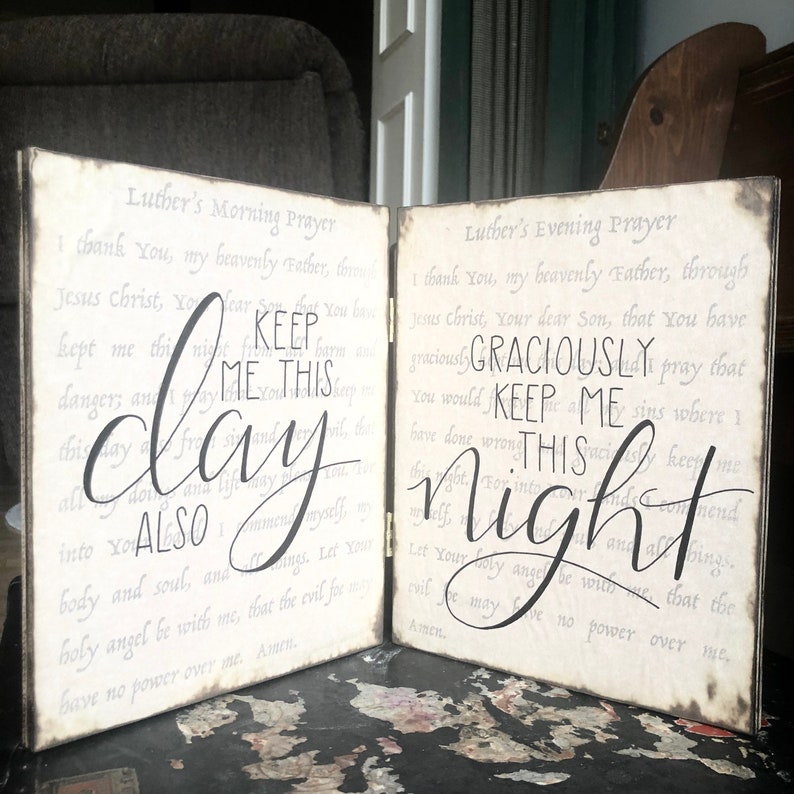 Luther's Morning Prayer
I thank You, my heavenly Father, through
Jesus Christ, Your dear Son, that You have
kept me this night from all harm and
danger; and I pray that You would keep me
this day also from sin and every evil, that
all my doings and life may please You. For
into Your hands I commend myself, my
body and soul, and all things. Let Your
holy angel be with me, that the evil foe may
have no power over me. Amen.
KEEP
ME THIS
day
ALSO
Luther's Evening Prayer
I thank You, my heavenly Father, through
Jesus Christ, Your dear Son, that You have
graciously kept me this day; and I pray that
You would forgive me all my sins where I
have done wrong, and graciously keep me
this night. For into Your hands I commend
myself, my body and soul, and all things.
Let Your holy angel be with me, that the
evil foe may have no power over me.
Amen.
GRACIOUSLY
KEEP ME
THIS
night